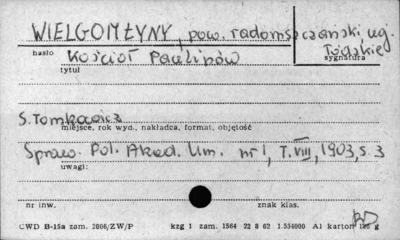 WIELGOMŁYNY, pow. radomszczański, wj.
Łódzkie
hasło sygnatura
Kościół Paulinów
tytuł
S. Tomkowicz
miejsce, rok wyd., nakładca, format, objętość
Spraw. Pol. Akad. Um. nr 1, T. VIII, 1903, s. 3
uwagi:
nr inw. znak klas.
CWD B-15a zam. 2006/ZW/P kzg 1 zam. 1564 22 8 62 1.554000 A1 karton g